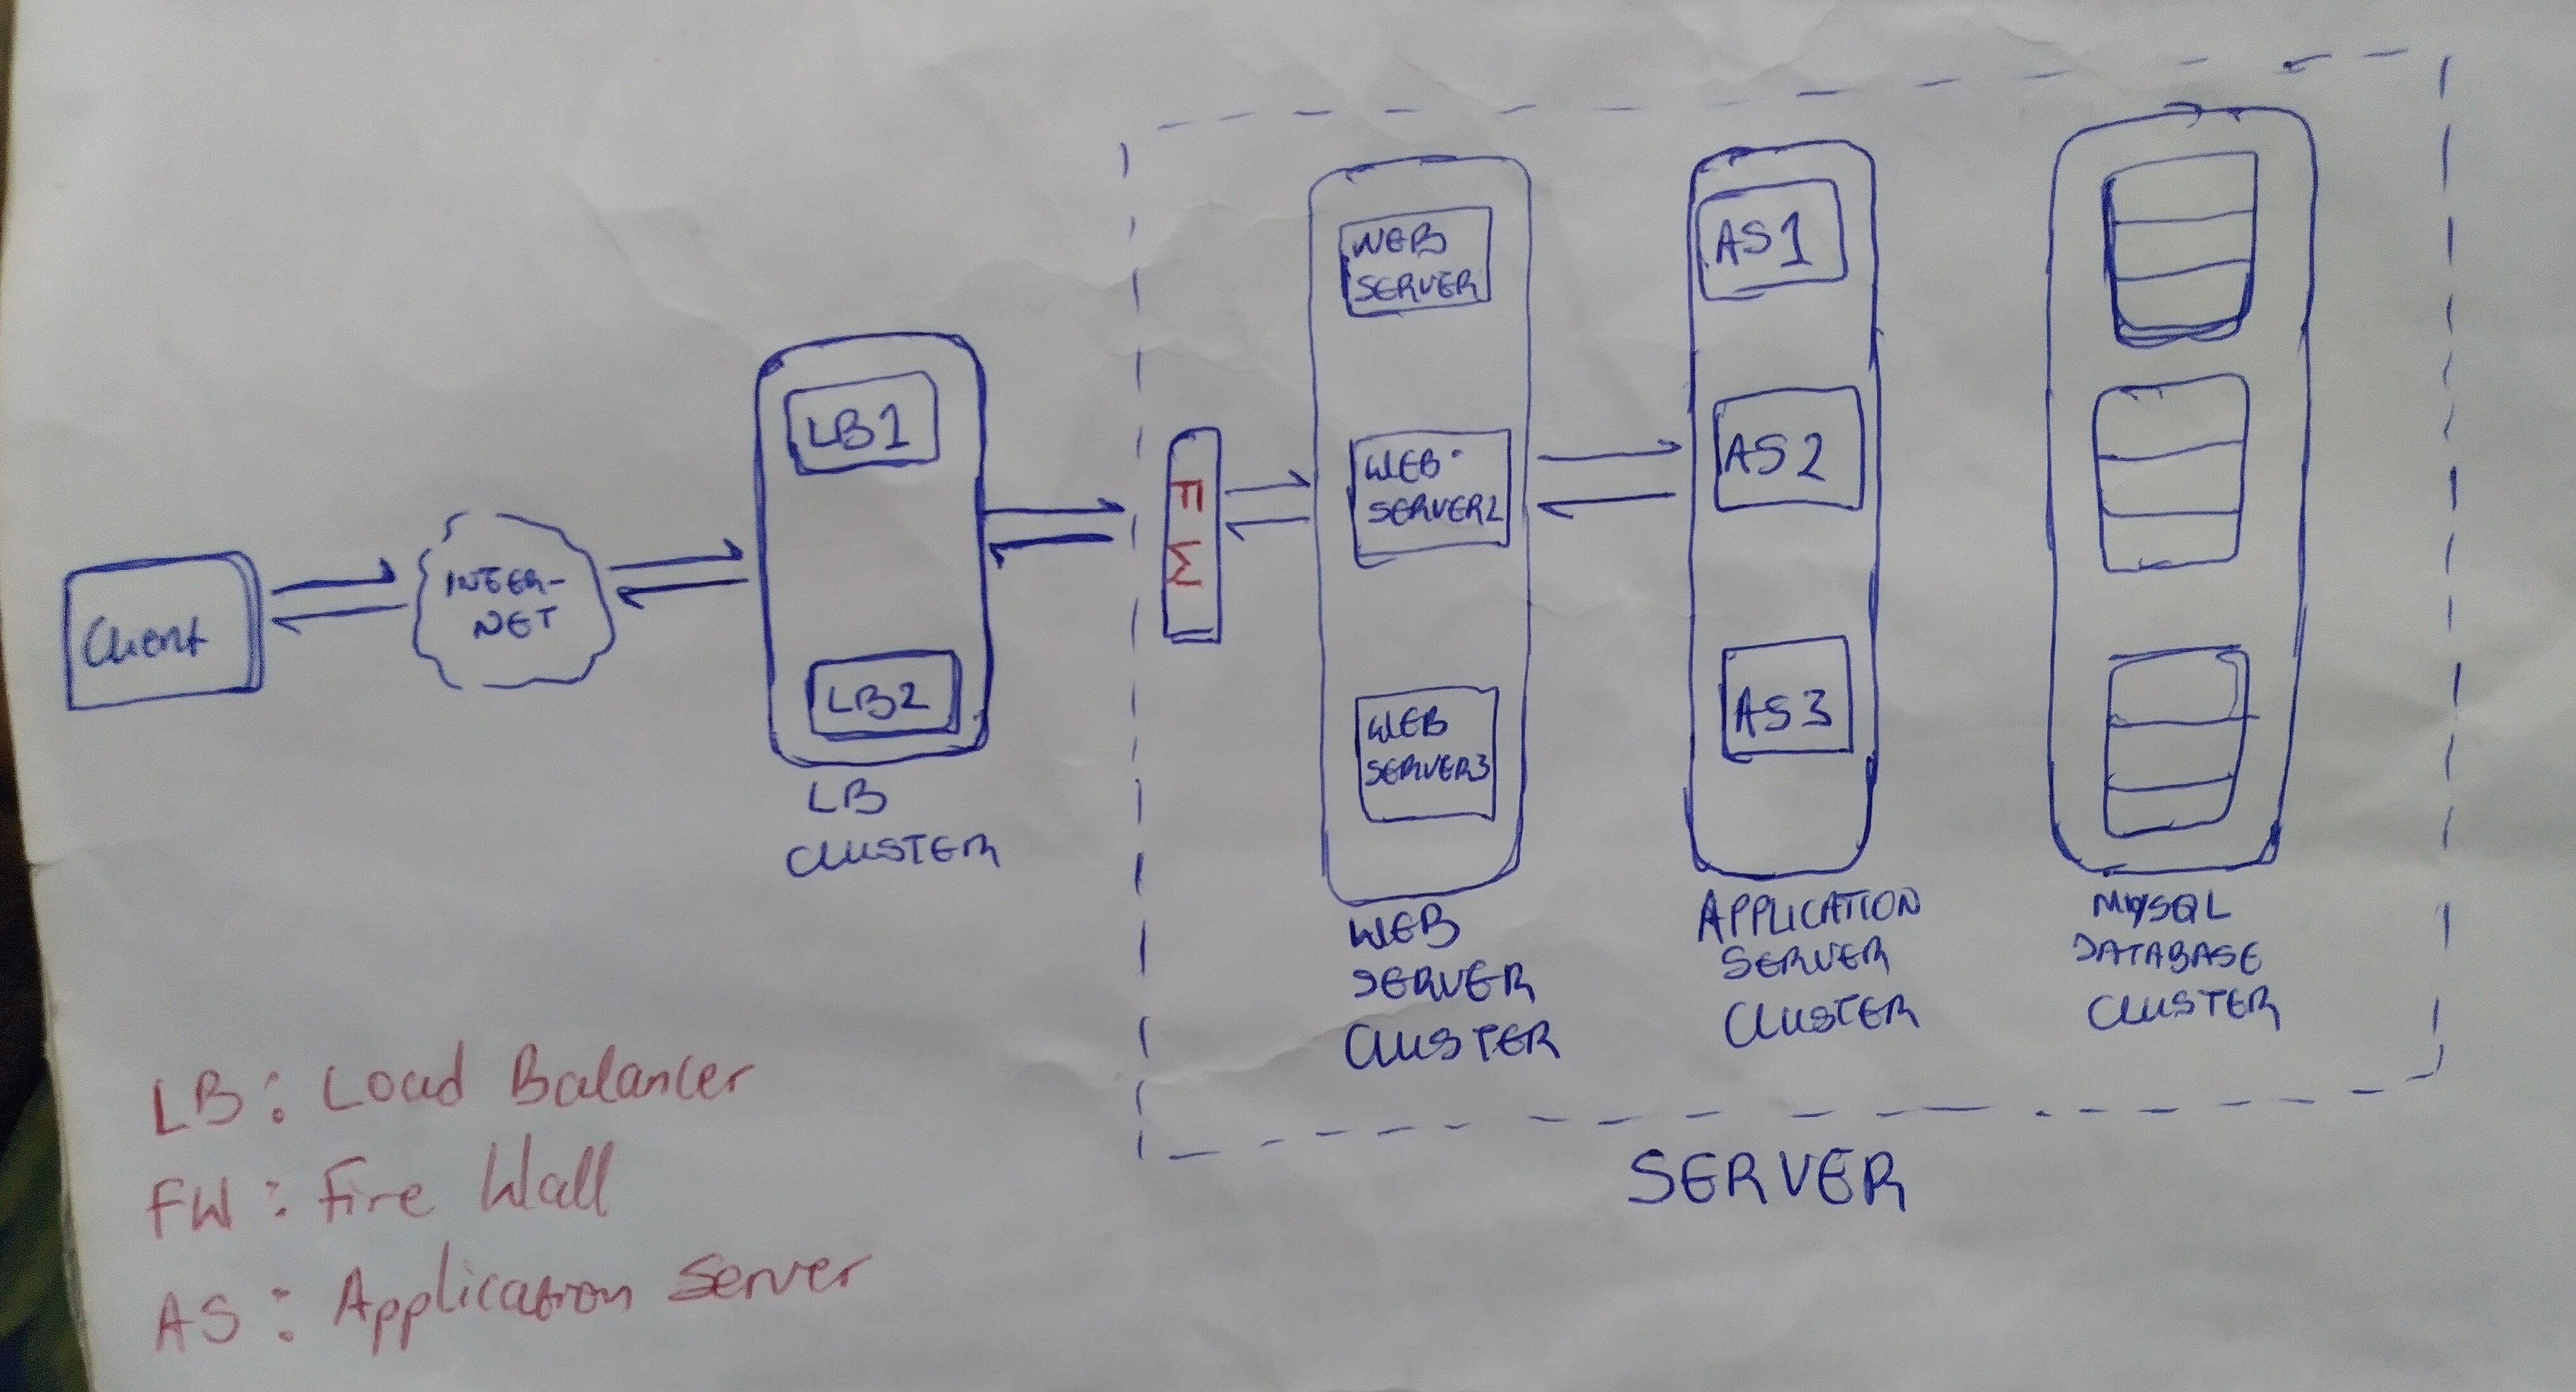 Client
INTER-
NET
LB1
LB2
LB
CLUSTER
F W
WEB
SERVER
WEB
SERVER2
WEB
SERVER3
WEB
SERVER
CLUSTER
AS1
AS2
AS3
APPLICATION
SERVER
CLUSTER
MySQL
DATABASE
CLUSTER
SERVER
LB: Load Balancer
FW: Fire Wall
AS: Application Server